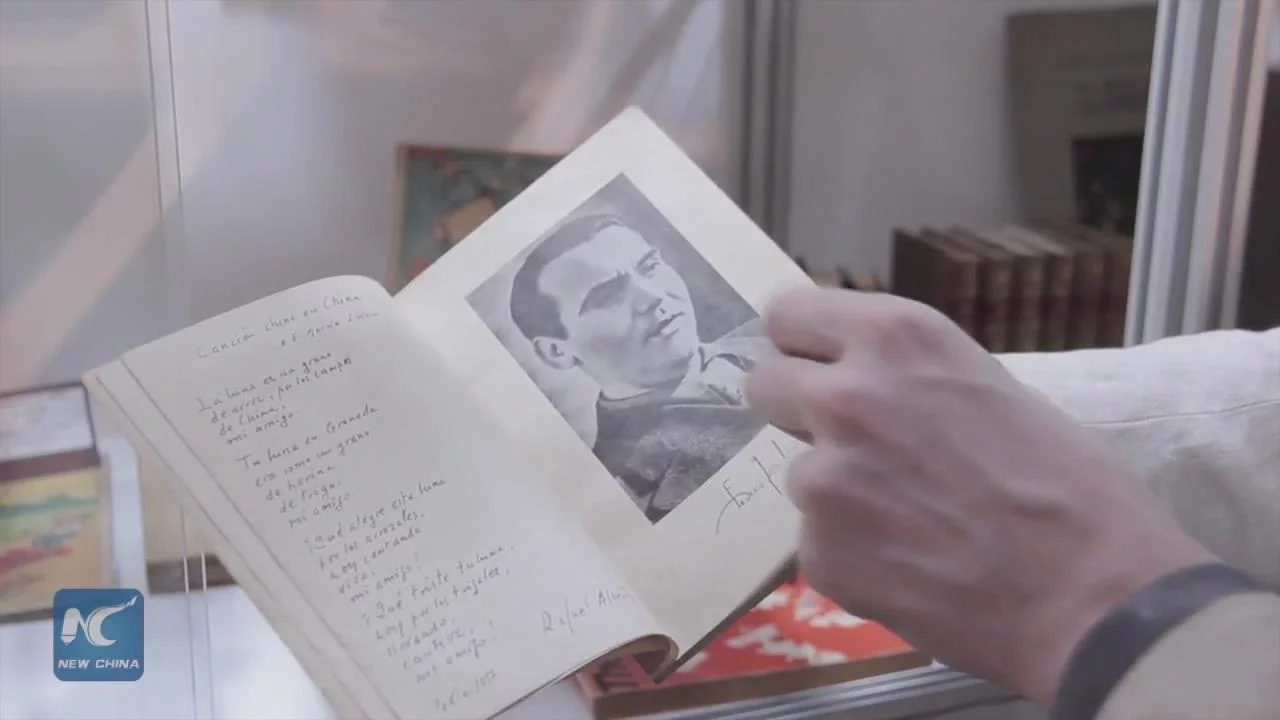 Canción china en China
a F. García Lorca
La luna es un grano
de arroz, por los campos
de China,
mi amigo.
Tu luna en Granada
era como un grano
de harina
de trigo,
mi amigo.
¡Qué alegre esta luna
por los arrozales,
hoy cantando
viva,
mi amigo!
¡Qué triste tu luna,
hoy por los trigales,
llorando,
cautiva,
mi amigo!
Rafael Alberti
NEW CHINA